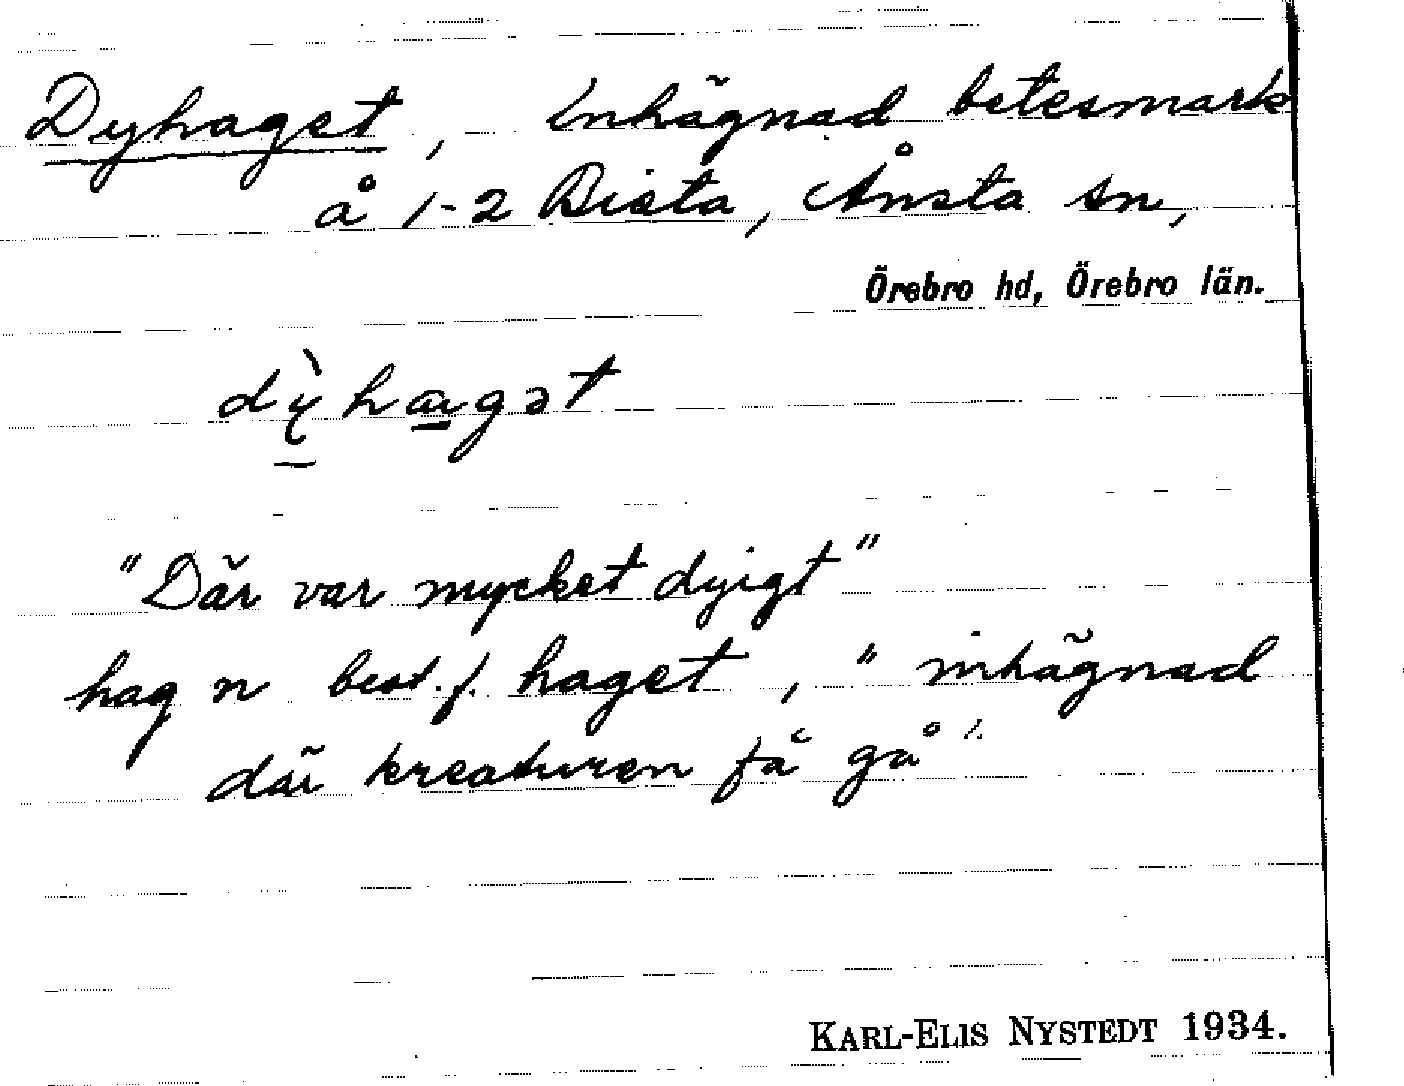 Dyhaget, inhägnad betesmark
å 1-2 Bista, Ånsta sn,
Örebro hd, Örebro län.
dỳhagət
"Där var mycket dyigt"
hag n best. f. haget, "inhägnad
där kreaturen få gå".
KARL-ELIS NYSTEDT 1934.